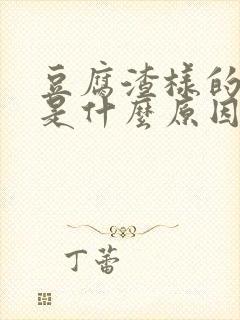 豆腐渣樣的
是什麼原因
丁蕾